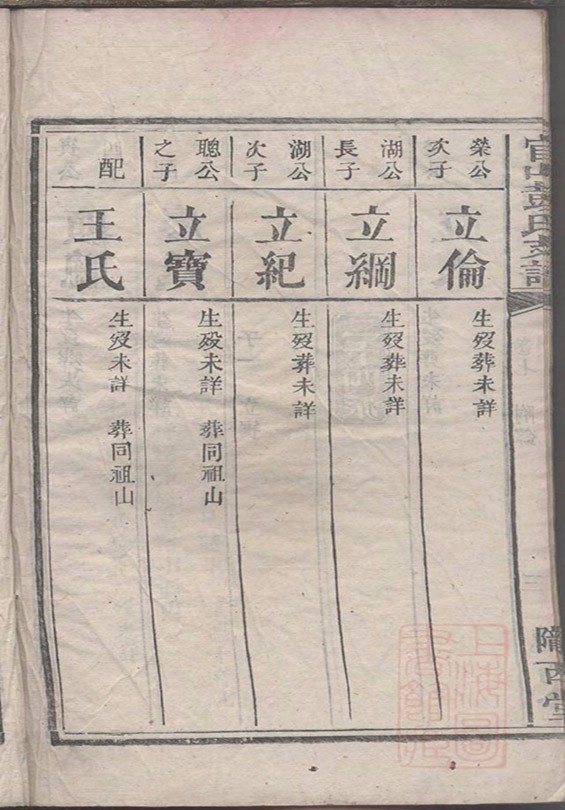 官山彭氏支譜
隴西堂
榮公
次子
立倫
生歿葬未詳
湖公
長子
立綱
生歿葬未詳
湖公
次子
立紀
生歿葬未詳
聰公
之子
立寶
生歿未詳 葬同祖山
配
王氏
生歿未詳 葬同祖山
上海圖
書館藏